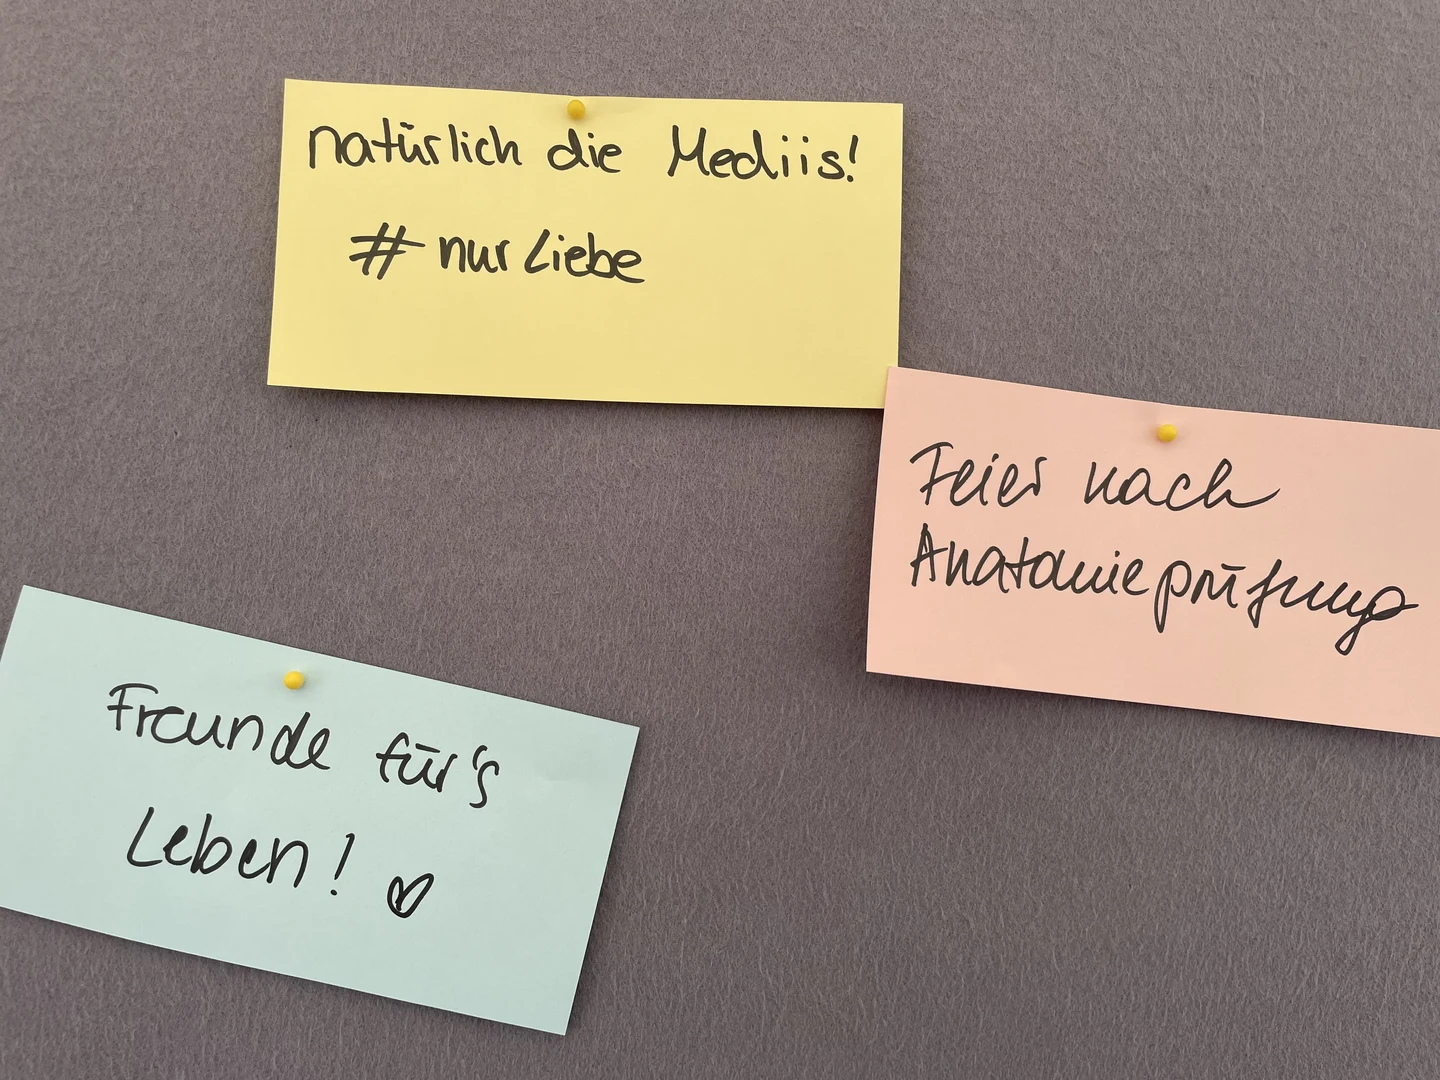 natürlich die Mediis!
# nurLiebe
Feier nach
Anatomieprüfung
Freunde für's
Leben! ♡